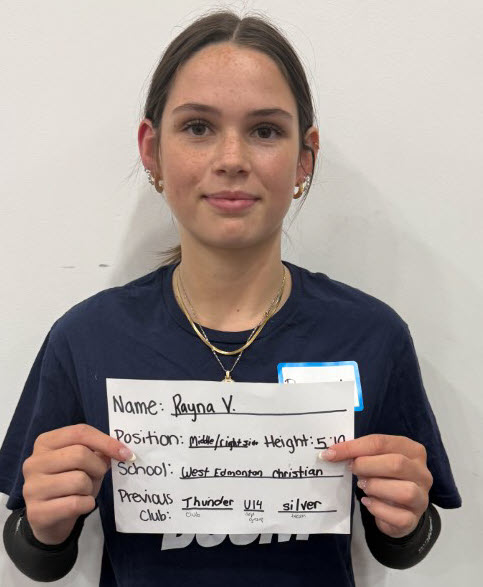 Name: Rayna V.
Position: Middle/rightside Height: 5'10
School: West Edmonton christian
Previous Thunder U14 silver
Club: club age group team